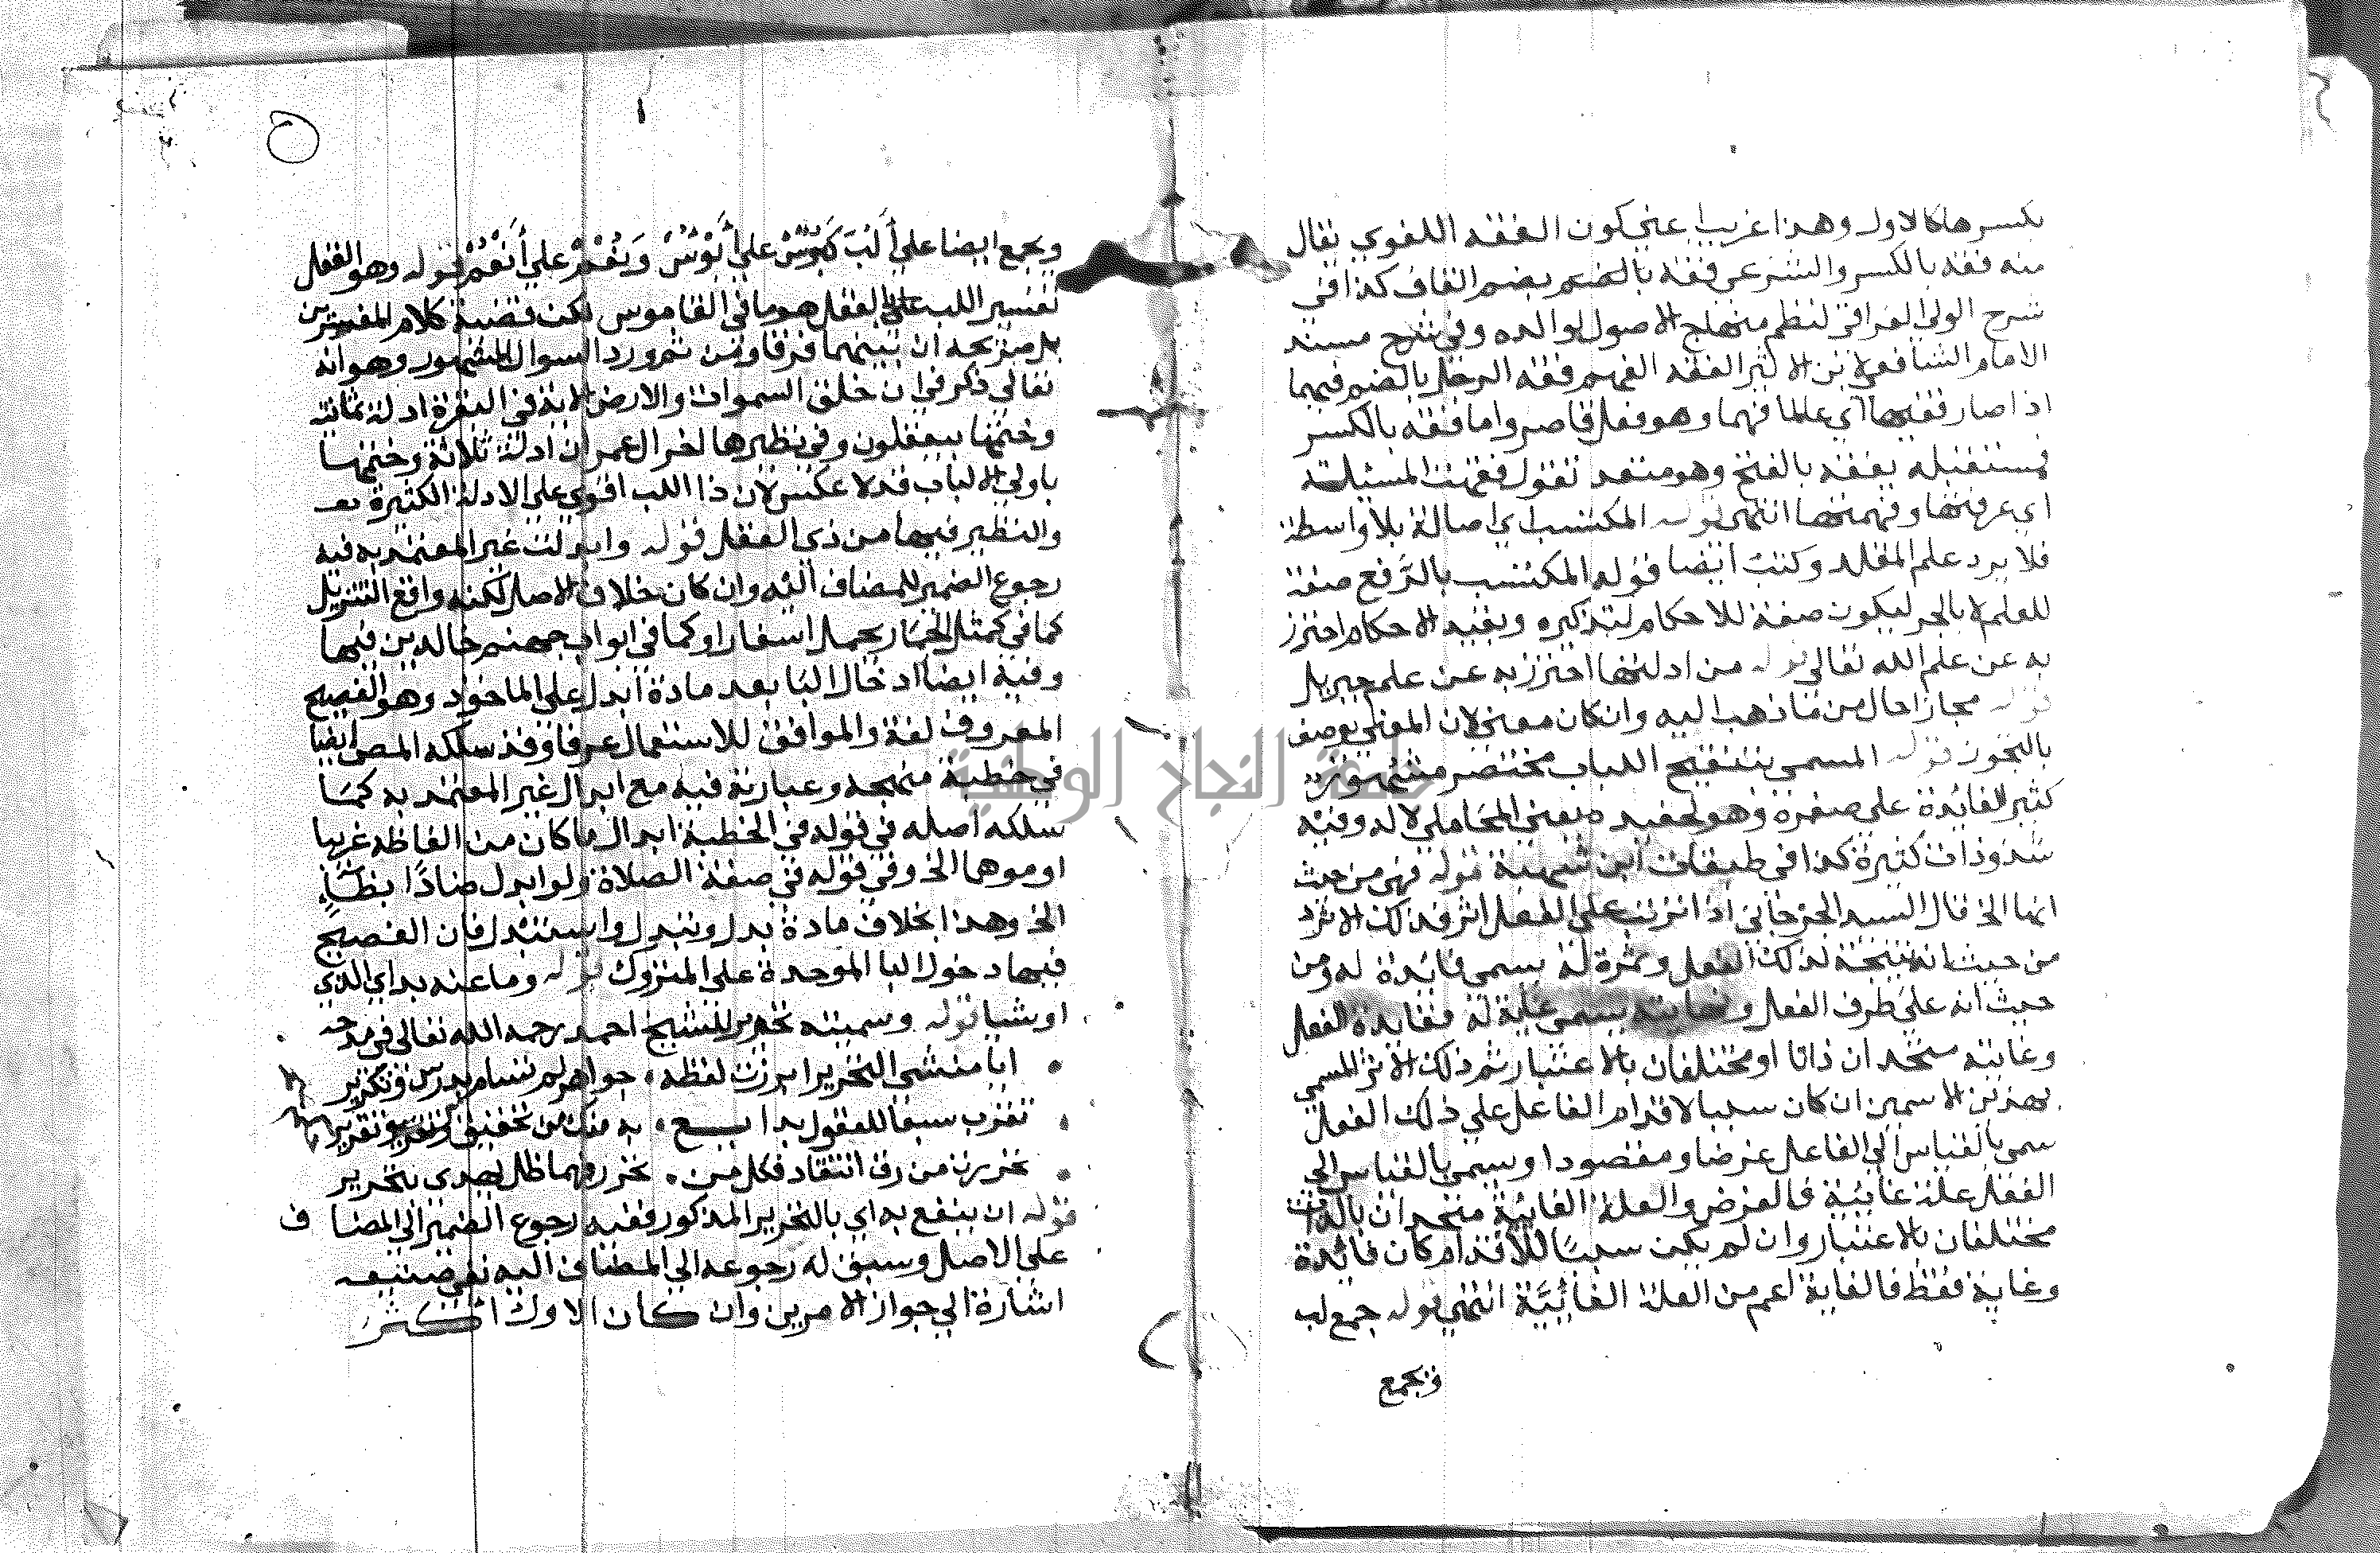 بكسرها كالاول وهذا اعزيب اعني كون الفقه اللغوي يقال
منه فقه بالكسر والشرعي فقه بالضم بضم القاف كذا في
شرح الولي العراقي لنظم منهاج الاصول لوالده وفي شرح مسند
الامام الشافعي لابن الاثير الفقه الفهم فقه الرجل بالضم فيهما
اذا صار فقيها اي عالما فهما وهو فعل قاصر واما فقه بالكسر
فمستقبله يفقه بالفتح وهو متعد تقول فقهت المسئلة
اي عرفتها وفهمتها انتهى قوله المكتسب اي اصالة بلا واسطة
فلا يرد علم المقلد وكتب ايضا قوله المكتسب بالرفع صفة
للعلم لا بالجر ليكون صفة للاحكام لتذكيره وبقيد الاحكام احترز
به عن علم الله تعالى قوله من ادلتها احترز به عن علم جبريل
قوله مجازا حال من ما ذهب اليه وان كان معنى لان المعنى يوصف
بالتجوز قوله المسمى بتنقيح اللباب مختصر مشتمل
كثير الفايدة على صغره وهو لحفيده يعني المحاملي لا له وفيه
شذوذات كثيرة كذا في طبقات ابن شهبة قوله فهي من حيث
انها الخ قال السيد الجرجاني اذا ترتب على الفعل اثر فذلك الاثر
من حيث انه نتيجة لذلك الفعل وثمرة له يسمى فايدة له ومن
حيث انه على طرف الفعل ونهايته يسمى غاية له ففايدة الفعل
وغايته متحدان ذاتا او مختلفان بالاعتبار ثم ذلك الاثر المسمى
بهذين الاسمين ان كان سببا لاقدام الفاعل على ذلك الفعل
سمي بالقياس الى الفاعل غرضا ومقصودا ويسمى بالقياس الى
الفعل علة غايية فالغرض والعلة الغائية متحدان بالذات
مختلفان بالاعتبار وان لم يكن سببا للاقدام كان فائدة
وغاية فقط فالغاية اعم من العلة الغائية انتهى قوله جمع لب
ويجمع
ويجمع ايضا على ألبّ كبؤس على أبؤس ونعم على أنعم قوله وهو العقل
تفسير اللب على العقل هو ما في القاموس لكن قضية كلام المفسرين
بل صريحه ان بينهما فرقا ومن ثم ورد السوال المشهور وهو انه
تعالى ذكر في ان خلق السموات والارض الاية في البقرة ادلة ثمانية
وختمها بيعقلون وفي نظيرها اخر ال عمران ادلة ثلاثة وختمها
باولي الالباب فهلا عكس لان ذا اللب اقوى على الادلة الكثيرة
والنظير فيها من ذي العقل قوله وابدلت غير المعتمد به فيه
رجوع الضمير للمضاف اليه وان كان خلاف الاصل لكنه واقع التنزيل
كما في كمثل الحمار يحمل اسفارا وكما في ابواب جهنم خالدين فيها
وفيه ايضا ادخال البا بعد مادة ابدل على الماخوذ وهو الفصيح
المعروف لغة والموافق للاستعمال عرفا وقد سلكه المص ايضا
في خطبة منهجه وعبارته فيه مع ابدال غير المعتمد به كما
سلكه اصله في قوله في الخطبة ابدال ما كان من الفاظه غريبا
او موهما الخ وفي قوله في صفة الصلاة ولو ابدل ضادا بظاء
الخ وهذا بخلاف مادة بدل وتبدل واستبدل فان الفصيح
فيها دخول البا الموحدة على المتروك قوله وما عنه بد اي الذي
او شيا قوله وسميته تحرير للشيخ احمد رحمه الله تعالى في مدحه
ايا منشي التحرير ابرزت لفظه . جواهر لم تسام بدرس وتكرير
تقرب سبقا للعقول بدايع . به منك من تحقيق وتقرير
تحررت من رق انتقاد فكل من . تحرر فهما ظل يهدى بتحرير
قوله ان ينفع به اي بالتحرير المذكور ففيه رجوع الضمير الى المضاف
على الاصل وسبق له رجوعه الى المضاف اليه ففي صنيعه
اشارة الى جواز الامرين وان كان الاول اكثر
جامعة النجاح الوطنية